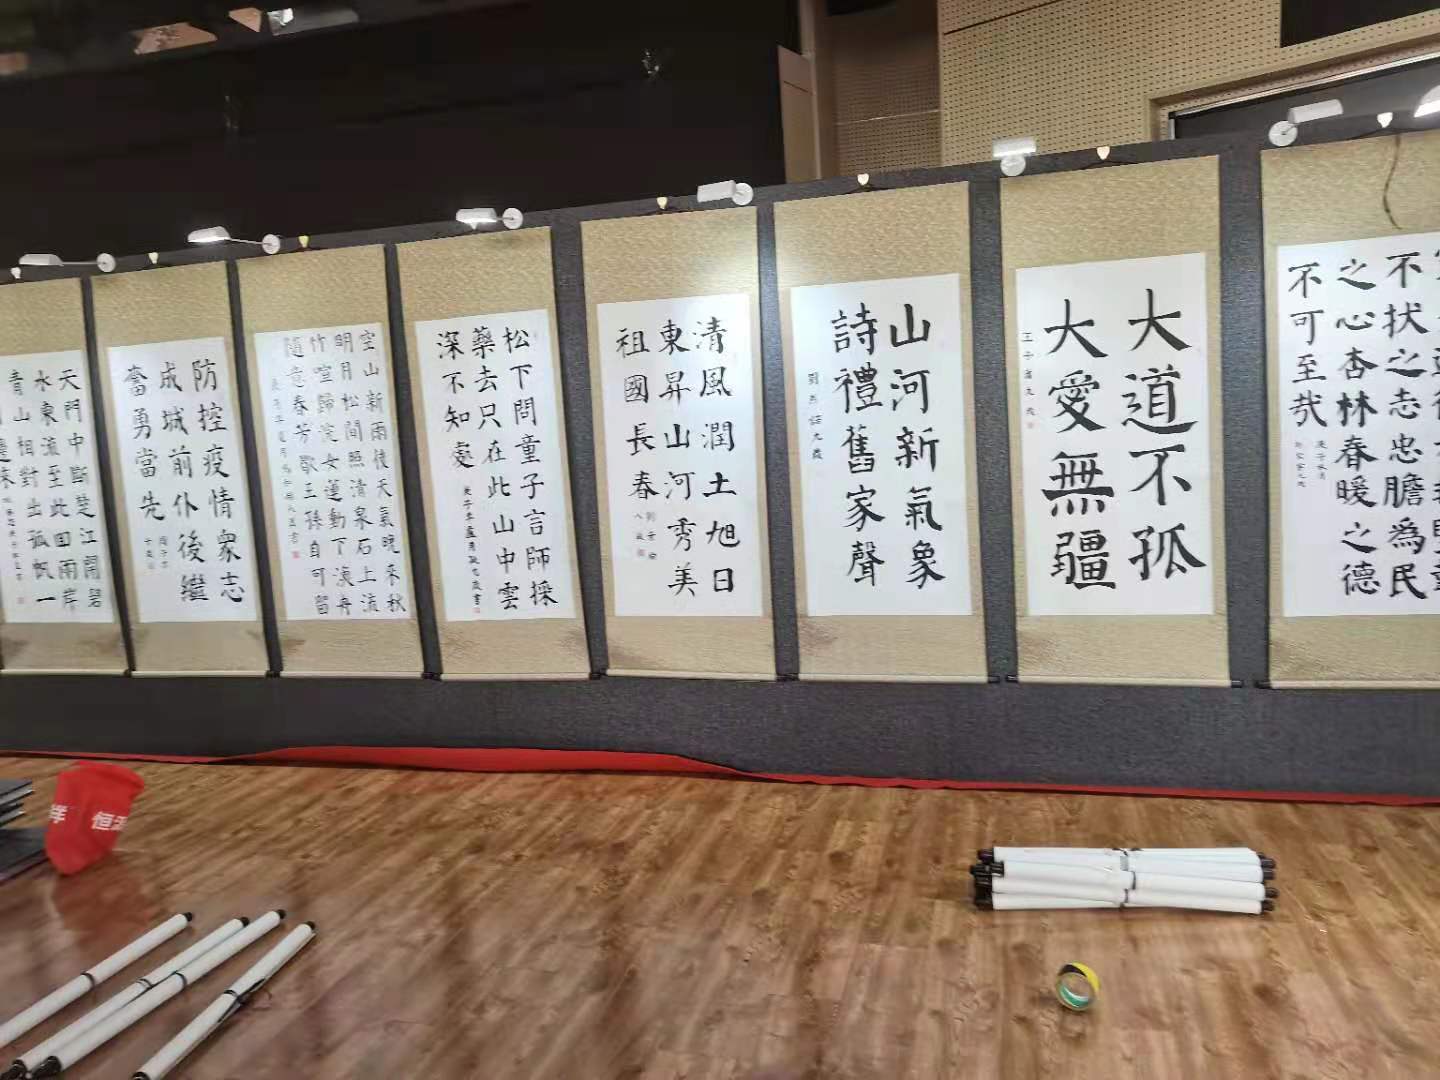 不状之志忠膽為民
之心杏林春暖之德
不可至哉
大道不孤
大愛無疆
山河新氣象
詩禮舊家聲
清風潤土旭日
東昇山河秀美
祖國長春
松下問童子言師採
藥去只在此山中雲
深不知處
空山新雨後天氣晚来秋
明月松間照清泉石上流
竹喧歸浣女蓮動下漁舟
隨意春芳歇王孫自可留
防控疫情衆志
成城前仆後繼
奮勇當先
天門中斷楚江開碧
水東流至此回兩岸
青山相對出孤帆一
邊来
祥 恒